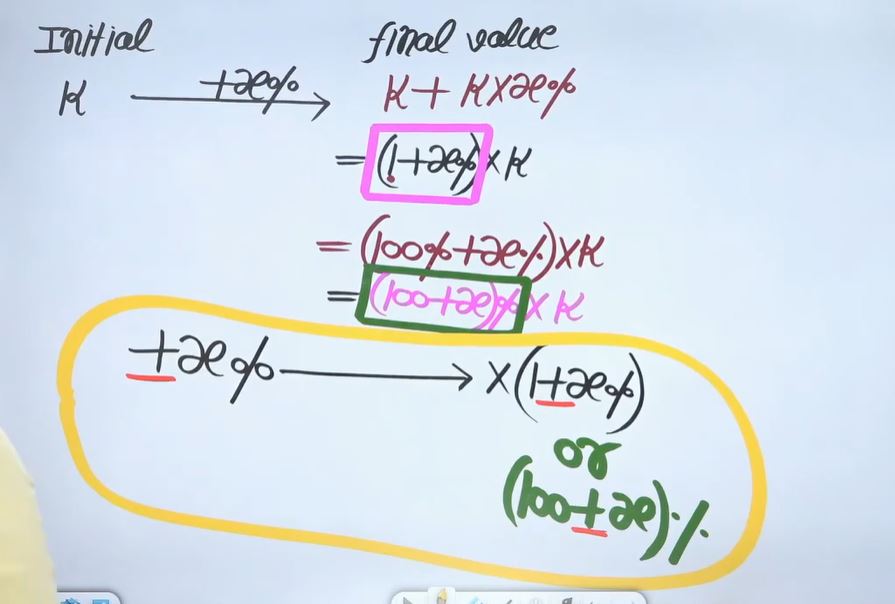 Initial final value
K +x% K + K×x%
= (1+x%)×K
= (100%+x%)×K
= (100+x)%×K
+x% ×(1+x%)
or
(100+x)%